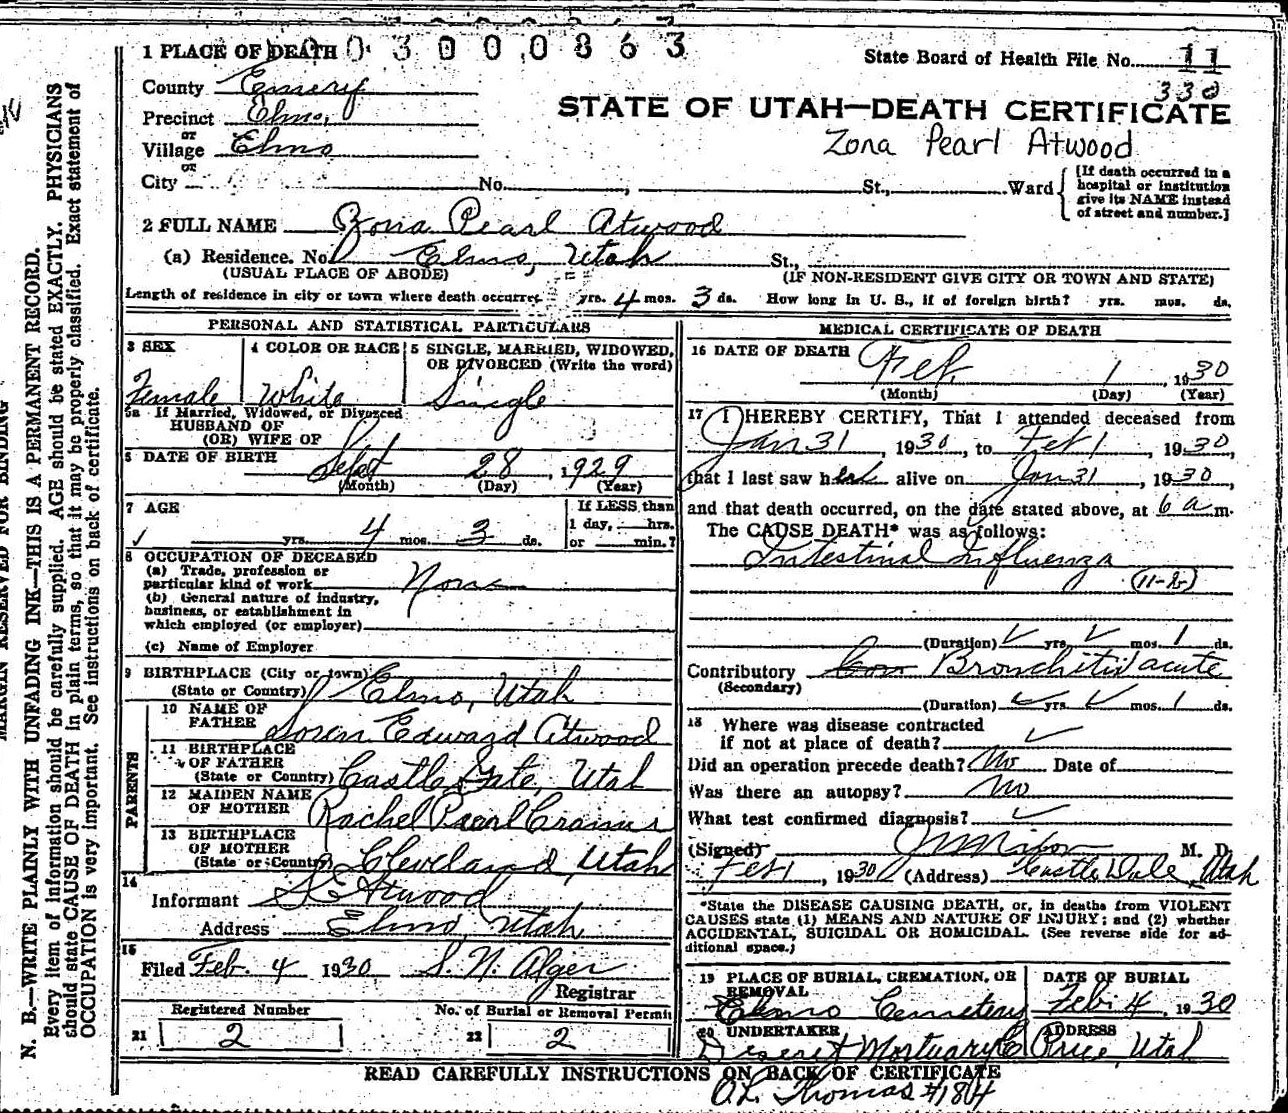 1 PLACE OF DEATH 0 3 0 0 0 0 8 6 3
State Board of Health File No. 11
330
County Emery
Precinct Elmo,
or
Village Elmo
or
City No. , St., Ward
STATE OF UTAH—DEATH CERTIFICATE
Zona Pearl Atwood
[If death occurred in a
hospital or institution
give its NAME instead
of street and number.]
2 FULL NAME Zona Pearl Atwood
(a) Residence. No. Elmo, Utah St.,
(USUAL PLACE OF ABODE) (IF NON-RESIDENT GIVE CITY OR TOWN AND STATE)
Length of residence in city or town where death occurred yrs. 4 mos. 3 ds. How long in U. S., if of foreign birth? yrs. mos. ds.
PERSONAL AND STATISTICAL PARTICULARS
3 SEX 4 COLOR OR RACE 5 SINGLE, MARRIED, WIDOWED,
OR DIVORCED (Write the word)
Female White Single
5a If Married, Widowed, or Divorced
HUSBAND OF
(OR) WIFE OF
6 DATE OF BIRTH Sept 28, 1929
(Month) (Day) (Year)
7 AGE If LESS than
1 day, hrs.
✓ yrs. 4 mos. 3 ds. or min.?
8 OCCUPATION OF DECEASED
(a) Trade, profession or
particular kind of work None
(b) General nature of industry,
business, or establishment in
which employed (or employer)
(c) Name of Employer
9 BIRTHPLACE (City or town)
(State or Country) Elmo, Utah
PARENTS
10 NAME OF
FATHER Soren Edward Atwood
11 BIRTHPLACE
OF FATHER
(State or Country) Castle Gate, Utah
12 MAIDEN NAME
OF MOTHER Rachel Pearl
13 BIRTHPLACE
OF MOTHER
(State or Country) Cleveland, Utah
14
Informant S E Atwood
Address Elmo, Utah
15
Filed Feb. 4 1930 S. N. Alger
Registrar
Registered Number No. of Burial or Removal Permit
21 2 22 2
MEDICAL CERTIFICATE OF DEATH
16 DATE OF DEATH Feb. 1, 1930
(Month) (Day) (Year)
17 I HEREBY CERTIFY, That I attended deceased from
Jan 31, 1930, to Feb 1, 1930,
that I last saw her alive on Jan 31, 1930,
and that death occurred, on the date stated above, at 6 a m.
The CAUSE DEATH* was as follows:
Intestinal Influenza
(11-b)
(Duration) ✓ yrs. ✓ mos. 1 ds.
Contributory Bronchitis acute
(Secondary)
(Duration) ✓ yrs. ✓ mos. 1 ds.
18 Where was disease contracted
if not at place of death? ✓
Did an operation precede death? No Date of
Was there an autopsy? no
What test confirmed diagnosis? ✓
(Signed) M. D.
Feb 1, 1930 (Address) Castle Dale, Utah
*State the DISEASE CAUSING DEATH, or, in deaths from VIOLENT
CAUSES state (1) MEANS AND NATURE OF INJURY; and (2) whether
ACCIDENTAL, SUICIDAL OR HOMICIDAL. (See reverse side for ad-
ditional space.)
19 PLACE OF BURIAL, CREMATION, OR
REMOVAL
Elmo Cemetery
DATE OF BURIAL
Feb. 4, 1930
20 UNDERTAKER
Deseret Mortuary Co
ADDRESS
Price, Utah
READ CAREFULLY INSTRUCTIONS ON BACK OF CERTIFICATE
O.L. Thomas #184
MARGIN RESERVED FOR BINDING
N. B.—WRITE PLAINLY WITH UNFADING INK—THIS IS A PERMANENT RECORD.
Every item of information should be carefully supplied. AGE should be stated EXACTLY. PHYSICIANS
should state CAUSE OF DEATH in plain terms, so that it may be properly classified. Exact statement of
OCCUPATION is very important. See instructions on back of certificate.